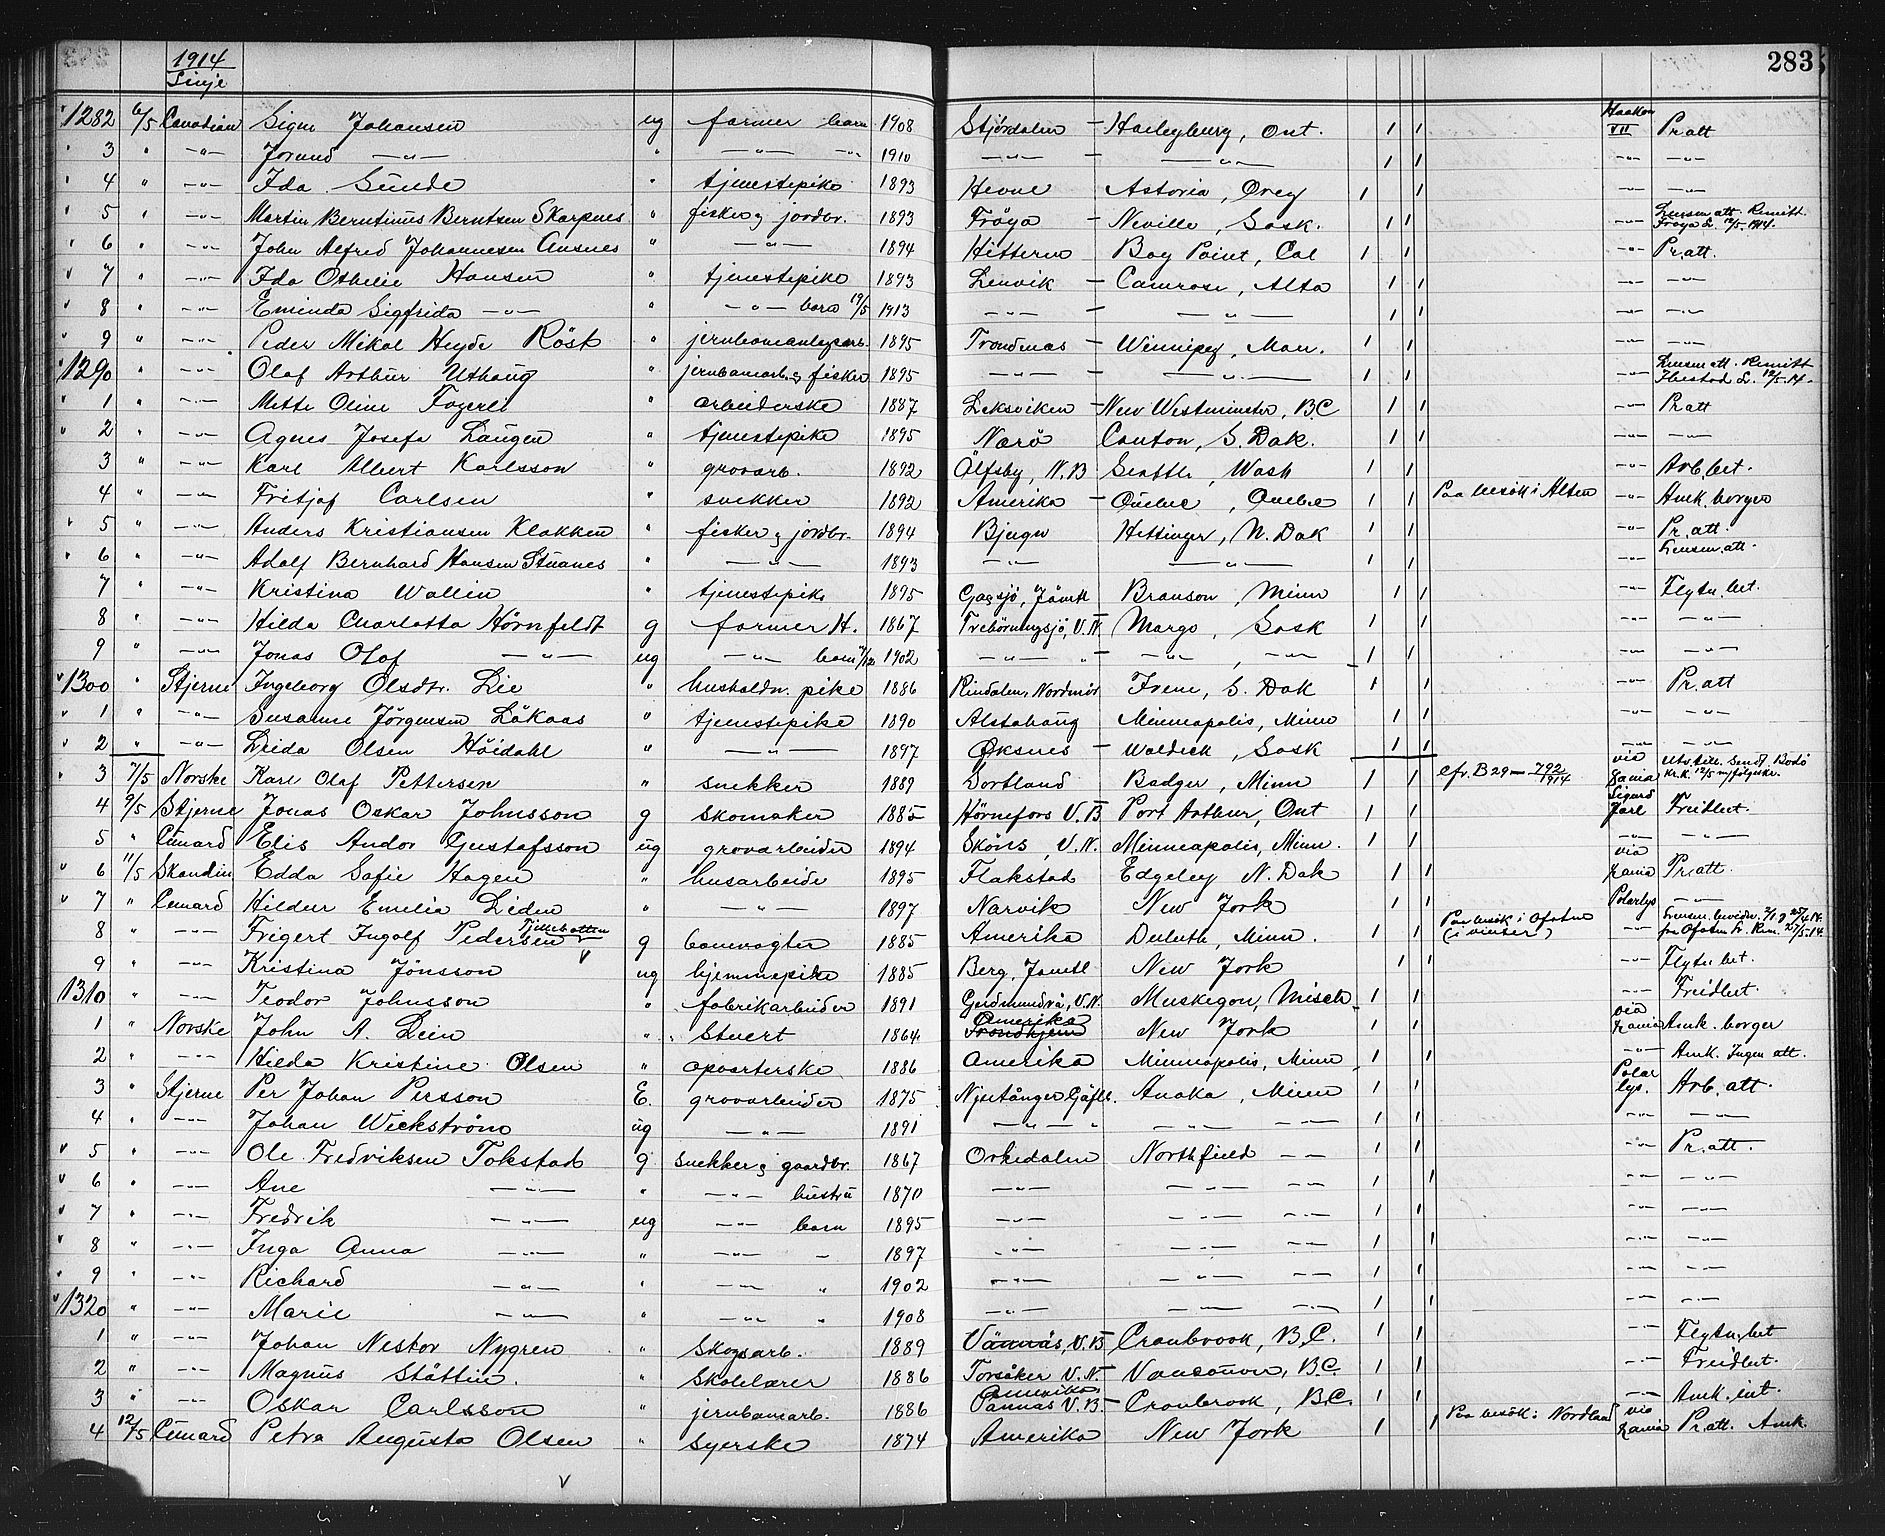 1914
Linje
283
1282 6/5 Canadian Signe Johansen ug farmer barn 1908 Stjördalen - Haileybury, Ont. 1 1 Haakon VII Pr att
3 " -"- Jorund -"- " -"- -"- 1910 -"- - -"- 1 1 -"- -"-
4 " -"- Ida Sunde " tjenestepike 1893 Hevne Astoria, Oreg 1 1 -"- -"-
5 " -"- Martin Berntinus Berntsen Skarpnes " fisker og jordbr. 1893 Fröya - Neville, Sask. 1 1 -"- Lensm att. Remitt. Fröya L. 12/5-1914.
6 " -"- John Alfred Johannesen Ansnes " -"- 1894 Hitteren Bay Point, Cal 1 1 -"- Pr att.
7 " -"- Ida Othelie Hansen " tjenestepike 1893 Lenvik - Camrose, Alta 1 1 -"- -"-
8 " -"- Eminda Sigfrida -"- " -"- barn 19/5 1913 -"- - -"- 1 1 -"- -"-
9 " -"- Peder Mikal Heyde Röst " jernbaneanlegsarb. 1895 Trondenæs - Winnipeg, Man. 1 1 -"- -"-
1290 " -"- Olaf Arthur Uthaug " jernbanearb. og fisker 1895 -"- - -"- 1 1 -"- Lensm att. Remitt Ibestad L. 12/5-14.
1 " -"- Mette Oline Fagerli " arbeiderske 1887 Leksviken - New Westminster, B.C 1 1 -"- Pr att
2 " -"- Agnes Josefa Laugen " tjenestepike 1895 Nærö Canton, S. Dak. 1 1 -"- -"-
3 " -"- Karl Albert Karlsson " grovarb. 1892 Älfsby, N.B Seattle, Wash 1 1 -"- Arb. bet.
4 " -"- Fritjof Carlsen " snekker 1892 Amerika - Quebec, Quebec 1 1 Paa besök i Alten -"- Amk. borger
5 " -"- Anders Kristiansen Klakken " fisker og jordbr. 1894 Bjugn Hettinger, N. Dak 1 1 -"- Pr. att.
6 " -"- Adolf Bernhard Hansen Stuanes " -"- 1893 -"- -"- 1 1 -"- Lensm. att.
7 " -"- Kristina Wallin " tjenestepike 1895 Gagsjö, Jämtl Branson, Minn 1 1 -"- Flytn. bet.
8 " -"- Hilda Charlotta Hörnfeldt g farmer H. 1867 Trehörningsjö, V.N. Margo, Sask 1 1 -"- -"-
9 " -"- Jonas Olof -"- ug -"- barn 7/12 1902 -"- " -"- , -"- 1 1 -"- -"-
1300 " Stjerne Ingeborg Olsdtr. Lie " husholdn. pike 1886 Rindalen, Nordmör Irene, S. Dak 1 1 -"- Pr. att
1 " -"- Susanne Jörgensen Låkaas " tjenestepike 1890 Alstahaug Minneapolis, Minn 1 1 -"- -"-
2 " -"- Leida Olsen Höidahl " -"- 1897 Øksnes - Waldeck, Sask 1 1 -"- -"-
3 7/5 Norske Karl Olaf Pettersen " snekker 1889 Sortland Badger, Minn 1 1 cfr. B 29 - 792/1914 via Xania Utv. till. sendt Bodö kr.k. 12/5 m/fölgeskr.
4 9/5 Stjerne Jonas Oskar Johnsson g skomaker 1885 Hörnefors V.B Port Arthur, Ont 1 1 Sigurd Jarl Freidbet.
5 " Cunard Elis Andor Gustafsson ug grovarbeider 1894 Sköns, V.N. Minneapolis, Minn. 1 1 -"- -"-
6 11/5 Skandin Edda Sofie Hagen " husarbeide 1895 Flakstad Edgeley N. Dak 1 1 via Xania Pr. att.
7 " Cunard Hildur Emelia Liden " -"- 1897 Narvik New York 1 1 Polarlys -"-
8 " -"- Frigert Ingolf Pedersen Tjellebotten g banevogter 1885 Amerika Duluth, Minn. 1 1 Paa besök i Ofoten (i vinter) -"-
9 " -"- Kristina Jönsson ug hjemmepike 1885 Berg, Jämtl New York 1 1 -"- Flytn bet.
1310 " -"- Teodor Johnsson " fabrikarbeider 1891 Gudmundrå, V.N. Muskegon, Misch 1 1 -"- Freidbet.
1 " Norske John A. Lein " Stuert 1864 Trondhjem Amerika New York 1 1 via Xania Amk. borger
2 " -"- Hilda Kristine Olsen " opvarterske 1886 Amerika Minneapolis, Minn 1 1 -"- Amk. Ingen att.
3 " Stjerne Per Johan Persson E. grovarbeider 1875 Njutånger Gäflb. Anoka, Minn 1 1 Polarlys. Arb. att.
4 " -"- Johan Wickström ug -"- 1891 -"- " -"- -"- 1 1 -"- -"-
5 " -"- Ole Fredriksen Tokstad g snekker og gaardbr. 1867 Orkedalen Northfield -"- 1 1 -"- Pr. att.
6 " -"- Ane -"- " -"- hustru 1870 -"- -"- -"- 1 1 -"- -"-
7 " -"- Fredrik -"- ug -"- barn 1895 -"- -"- -"- 1 1 -"- -"-
8 " -"- Inga Anna -"- " -"- " 1897 -"- -"- -"- 1 1 -"- -"-
9 " -"- Richard -"- " -"- " 1902 -"- -"- -"- 1 1 -"- -"-
1320 " -"- Marie -"- " -"- " 1908 -"- -"- -"- 1 1 -"- -"-
1 " -"- Johan Nestor Nygren " skogsarb. 1889 Vännäs, V.B - Cranbrook, B.C. 1 1 -"- Flytn. bet
2 " -"- Magnus Stättin. " skolelærer 1886 Torsåker V.N. - Vancouver, B.C. 1 1 -"- Freidbet.
3 " -"- Oskar Carlsson " jernbanearb. 1886 Amerika V.B. - Cranbrook, B.C. 1 1 -"- Amk. int.
4 12/5 Cunard Petra Augusta Olsen " syerske 1874 Amerika New York 1 1 Paa besök i Nordland via Xania Pr. att. Amk.